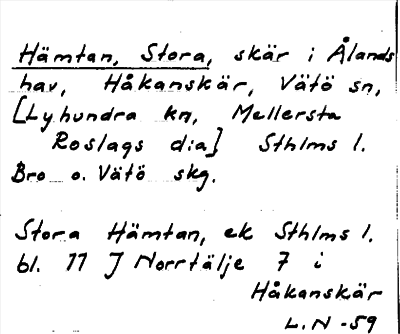 Hämtan, Stora, skär i Ålands
hav, Håkanskär, Vätö sn,
[Lyhundra kn, Mellersta
Roslags d:a] Sthlms l.
Bro o. Vätö skg.
Stora Hämtan, ek Sthlms l.
bl. 77 J Norrtälje 7 i
Håkanskär
L.N -59